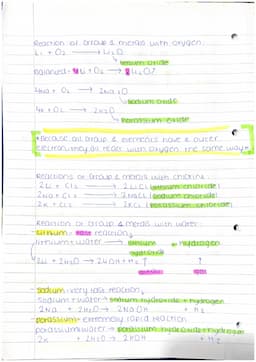 Reaction of Group 1 metals with oxygen:
Li + O2 → Li2O
lithium oxide
Balanced: Li + O2 → Li2O?
4Na + O2 → 2Na2O
sodium oxide
4K + O2 → 2K2O
Potassium oxide
*Because all Group 1 elements have 1 outer
electron, they all react with oxygen the same way*
Reactions of Group 1 metals with chlorine:
2Li + Cl2 → 2LiCl (lithium chloride)
2Na + Cl2 → 2NaCl (sodium chloride)
2K + Cl2 → 2KCl (potassium chloride)
Reaction of Group 1 metals with water
Lithium: fast reaction
lithium + water → lithium + hydrogen
hydroxide
2Li + 2H2O → 2LiOH + H2 ↑
- sodium - very fast reaction
sodium + water → sodium hydroxide + hydrogen
2Na + 2H2O → 2NaOH + H2
- potassium - extremely rapid reaction
potassium + water → potassium hydroxide + hydrogen
2K + 2H2O → 2KOH + H2